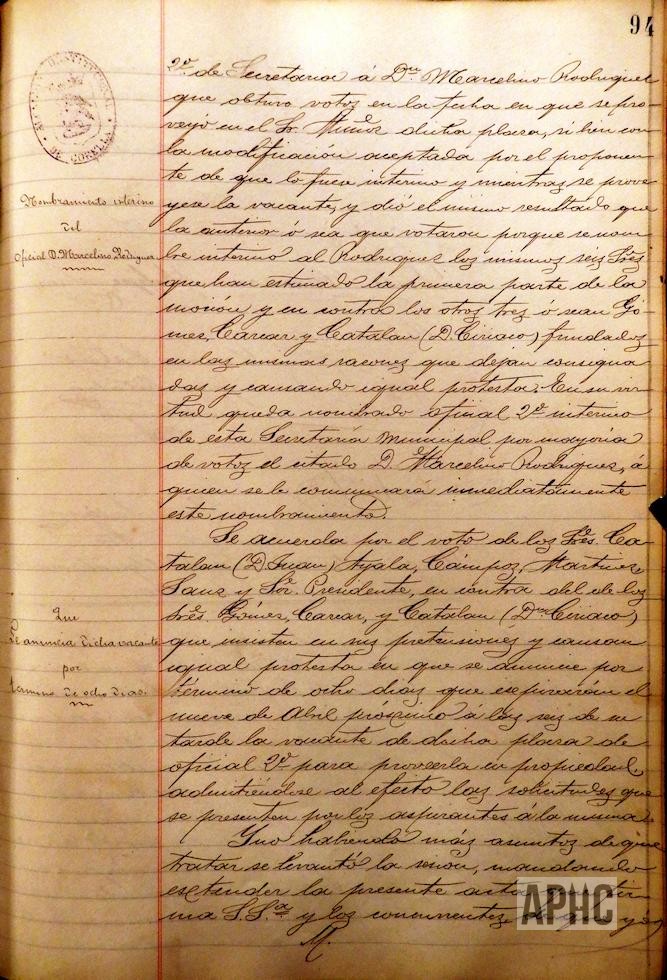 94
ALCALDIA CONSTITUCIONAL
DE CORELLA
2º. de Secretaria á Dn. Marcelino Rodriguez
que obtuvo votos en la fecha en que se pro-
veyó en el Sr. Muñoz dicha plaza, si bien con
la modificación aceptada por el proponen-
te de que lo fuese interino y mientras se prove
yese la vacante, y dió el mismo resultado que
la anterior ó sea que votaron porque se nom-
bre interino al Rodriguez los mismos seis Sres
que han estimado la primera parte de la
moción, y en contra los otros tres ó sean Gó-
mez, Carcar y Catalan (D. Ciriaco) fundados
en las mismas razones que dejan consigna-
das y causando igual protesta. En su vir-
tud queda nombrado oficial 2º. interino
de esta Secretaría Municipal por mayoria
de votos el citado D. Marcelino Rodriguez, á
quien se le comunicará inmediatamente
este nombramiento.
Nombramiento interino
del
Oficial D. Marcelino Rodriguez
Se acuerda por el voto de los Sres. Ca-
talan (D. Juan) Ayala, Cámpos, Martinez
Sanz y Sor. Presidente, en contra del de los
Sres. Gómez, Carcar, y Catalan (Dn. Ciriaco)
que insisten en sus pretensiones y causan
igual protesta en que se anuncie por
término de ocho dias que espirarán el
nueve de Abril próximo á las seis de su
tarde la vacante de dicha plaza de
oficial 2º. para proveerla en propiedad,
admitiéndose al efecto las solicitudes que
se presenten por los aspirantes á la misma.
Que
se anuncia dicha vacante
por
término de ocho dias.
Y no habiendo más asuntos de que
tratar se levantó la sesión, mandando
extender la presente acta que
ma S. Sª. y los concurrentes
APHC